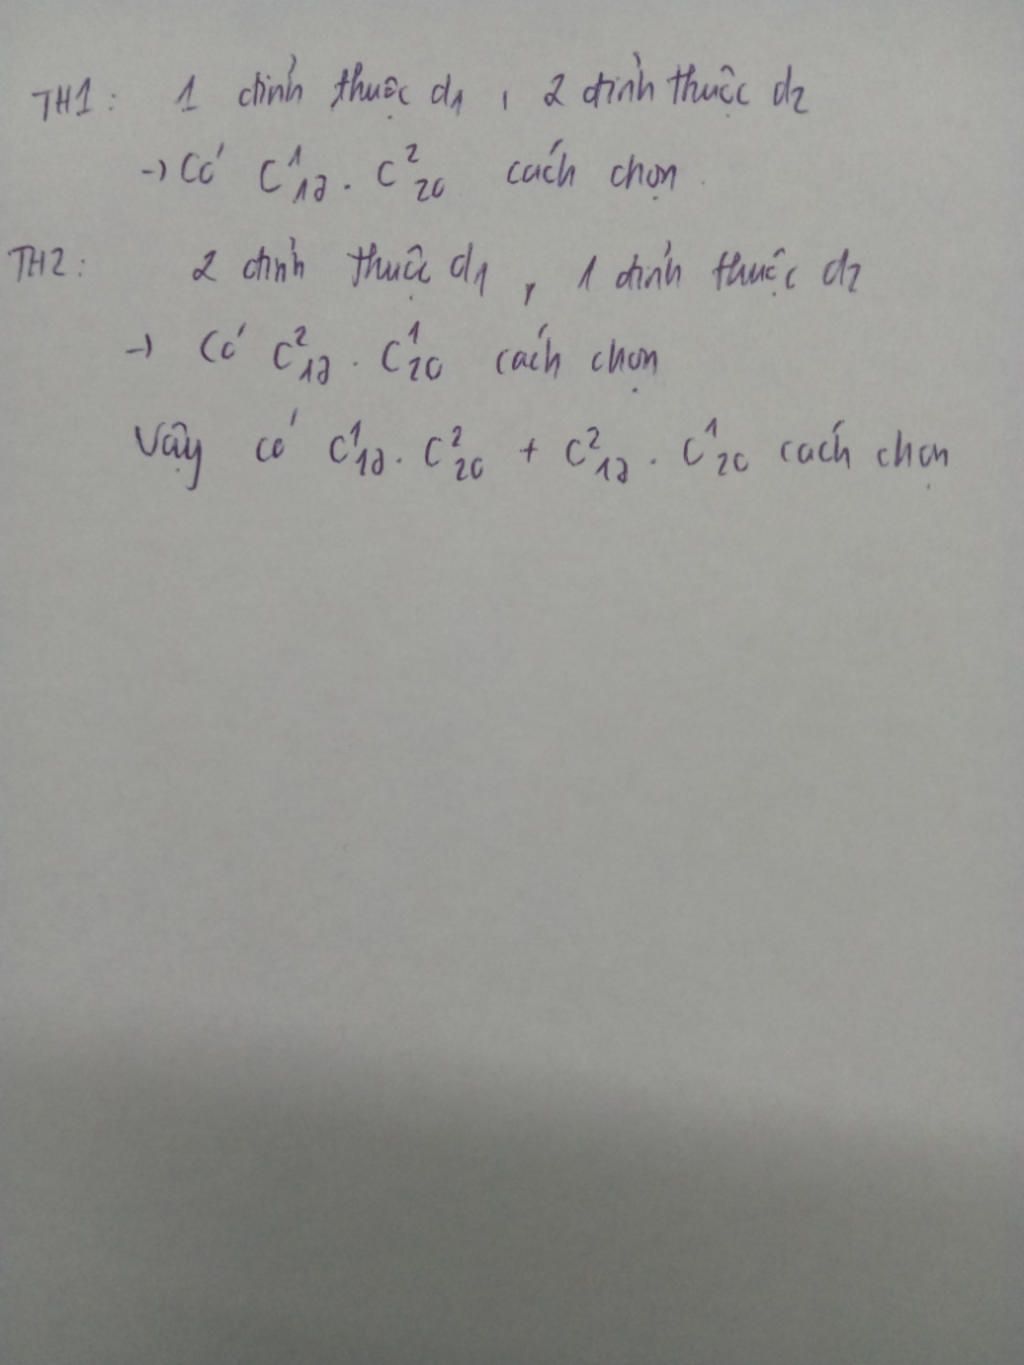 TH1: 1 đỉnh thuộc d1, 2 đỉnh thuộc d2
→ Có C¹₁₇ . C²₂₀ cách chọn.
TH2: 2 đỉnh thuộc d1, 1 đỉnh thuộc d2
→ Có C²₁₇ . C¹₂₀ cách chọn
Vậy có C¹₁₇ . C²₂₀ + C²₁₇ . C¹₂₀ cách chọn